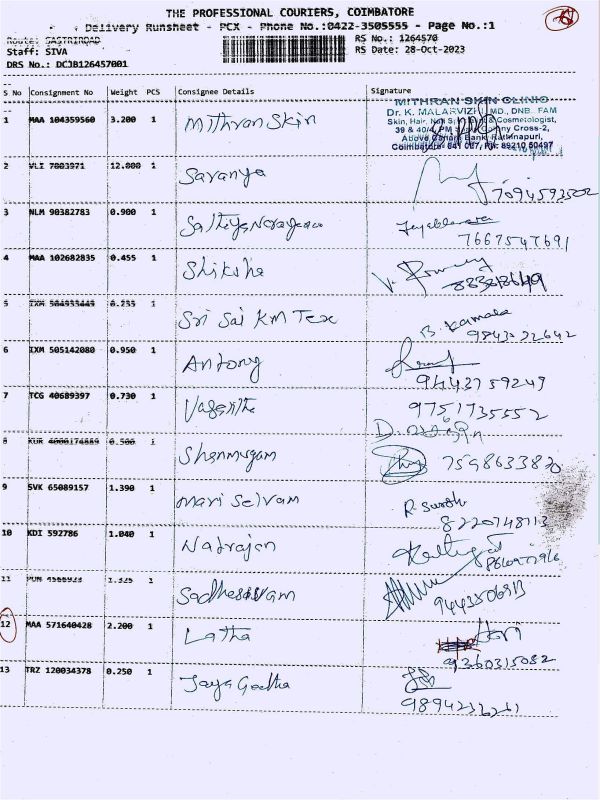 THE PROFESSIONAL COURIERS, COIMBATORE
Delivery Runsheet - PCX - Phone No.:0422-3505555 - Page No.:1
Route: SASTRIROAD
RS No.: 1264570
Staff: SIVA
RS Date: 28-Oct-2023
DRS No.: DCJB126457001
S No Consignment No Weight PCS Consignee Details Signature
1 MAA 104359560 3.200 1 Mithran Skin
MITHRAN SKIN CLINIC
Dr. K. MALARVIZHI, MD., DNB. FAM
Skin, Hair, & Cosmetologist,
39 & 40/4, PM Colony Cross-2,
Above Canara Bank, Rathinapuri,
Coimbatore- 641 027, PH: 89210 50497
2 VLI 7003971 12.000 1 Saranya
7094593502
3 NLM 90382783 0.900 1 Sathiya Narayanan
7667547691
4 MAA 102682835 0.455 1 Shiksha
5 IXM 504935449 0.255 1 Sri Sai KM Tex B. Kamala
6 IXM 505142080 0.950 1 Antony
9442759249
7 TCG 40689397 0.730 1 Vasantha 9751735552
8 KUR 0.500 1 Shanmugam 7598633820
9 SVK 65089157 1.390 1 Mari Selvam R. Suresh
8220748113
10 KDI 592786 1.040 1 Natrajan
11 PON 4566923 1.325 1 Sadhasivam
9443506913
12 MAA 571640428 2.200 1 Latha Hari
9360315082
13 TRZ 120034378 0.250 1 Jaya Geetha